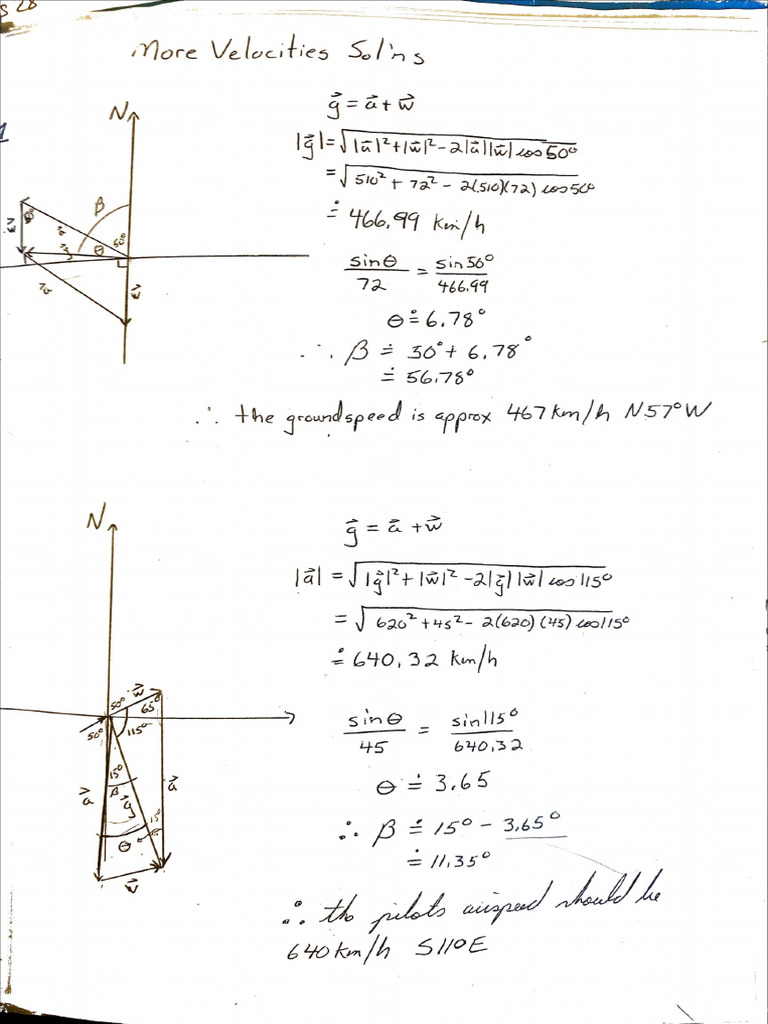 More Velocities Sol'ns
g⃗ = a⃗ + w⃗
|g⃗| = √|a⃗|² + |w⃗|² - 2|a⃗||w⃗| cos 50°
= √510² + 72² - 2(510)(72) cos 50°
≐ 466.99 km/h
sinθ/72 = sin50°/466.99
θ ≐ 6.78°
∴ β ≐ 50° + 6.78°
≐ 56.78°
∴ the groundspeed is approx 467 km/h N57°W
N
β
50°
θ
w⃗
a⃗
w⃗
g⃗ = a⃗ + w⃗
|a⃗| = √|g⃗|² + |w⃗|² - 2|g⃗||w⃗| cos 115°
= √620² + 45² - 2(620)(45) cos 115°
≐ 640.32 km/h
sinθ/45 = sin115°/640.32
θ ≐ 3.65
∴ β ≐ 15° - 3.65°
≐ 11.35°
∴ the pilots airspeed should be
640 km/h S11°E
N
50° w⃗
65°
50° 115°
15°
a⃗ β a⃗
g⃗ 15°
θ
w⃗